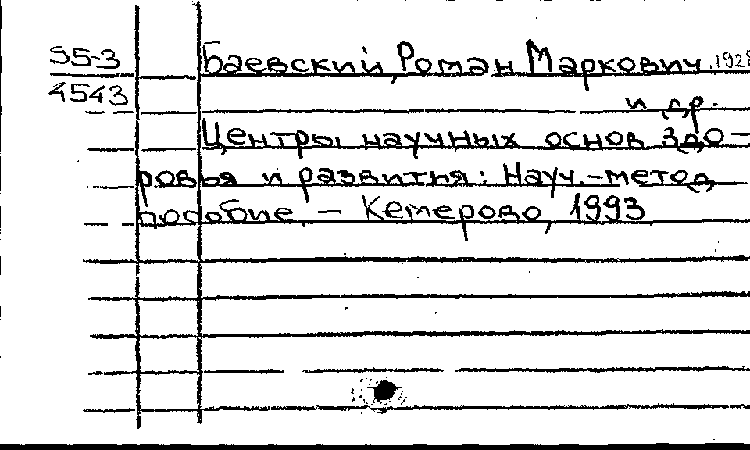 95-3
4543
Баевский, Роман Маркович, 1928
и др.
Центры научных основ здо-
ровья и развития: Науч.-метод
пособие. - Кемерово, 1993